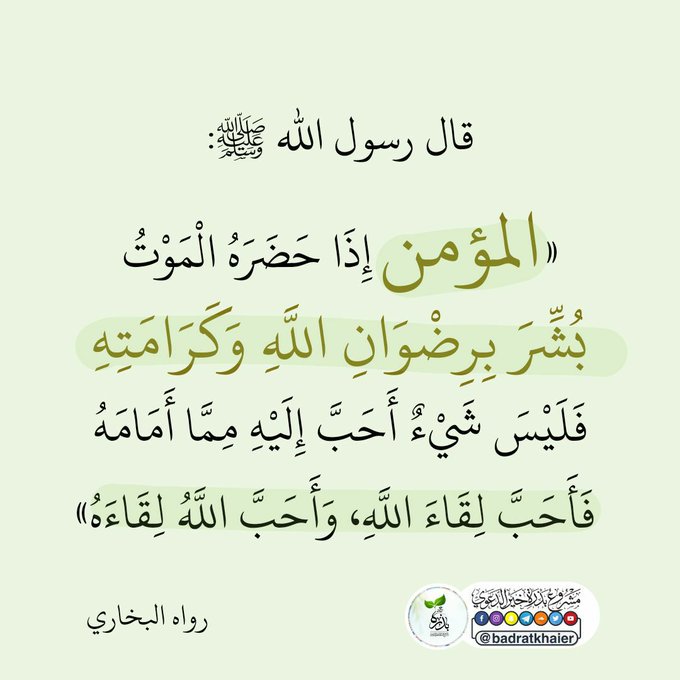 قال رسول الله ﷺ:
«المؤمن إِذَا حَضَرَهُ الْمَوْتُ
بُشِّرَ بِرِضْوَانِ اللَّهِ وَكَرَامَتِهِ
فَلَيْسَ شَيْءٌ أَحَبَّ إِلَيْهِ مِمَّا أَمَامَهُ
فَأَحَبَّ لِقَاءَ اللَّهِ، وَأَحَبَّ اللَّهُ لِقَاءَهُ»
رواه البخاري
مشروع بذرة خير الدعوي
@badratkhaier